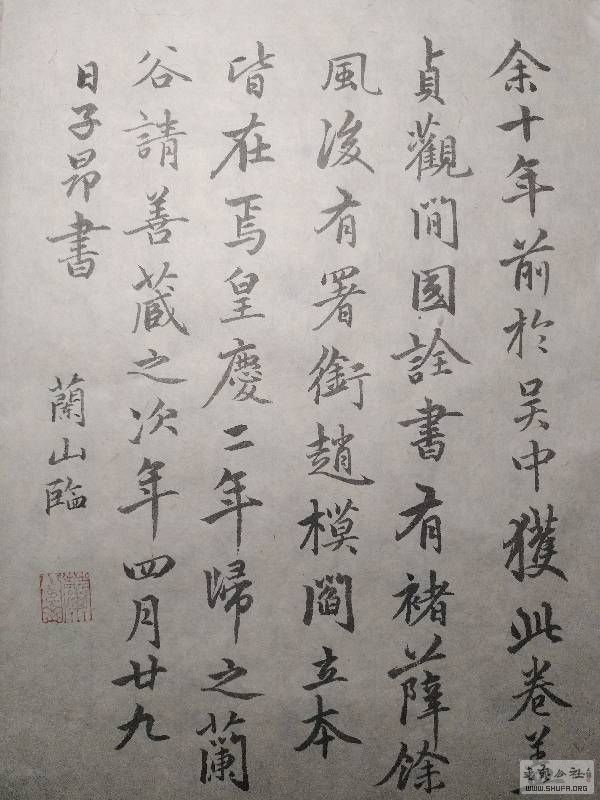 余十年前於吴中獲此卷蓋
貞觀間國詮書有褚薛餘
風後有署銜趙模閻立本
皆在焉皇慶二年歸之蘭
谷請善藏之次年四月廿九
日子昂書
蘭山臨
WWW.SHUFA.ORG